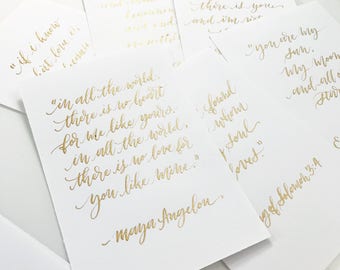 "if i know
what love is,
there is you
and
"you are my
sun,
my moon,
and all of
stars
"in all the world,
there is no heart
for me like yours.
in all the world,
there is no love for
you like mine."
Maya Angelou
found
whom
my soul
loves."
Song of Solomon 3:4